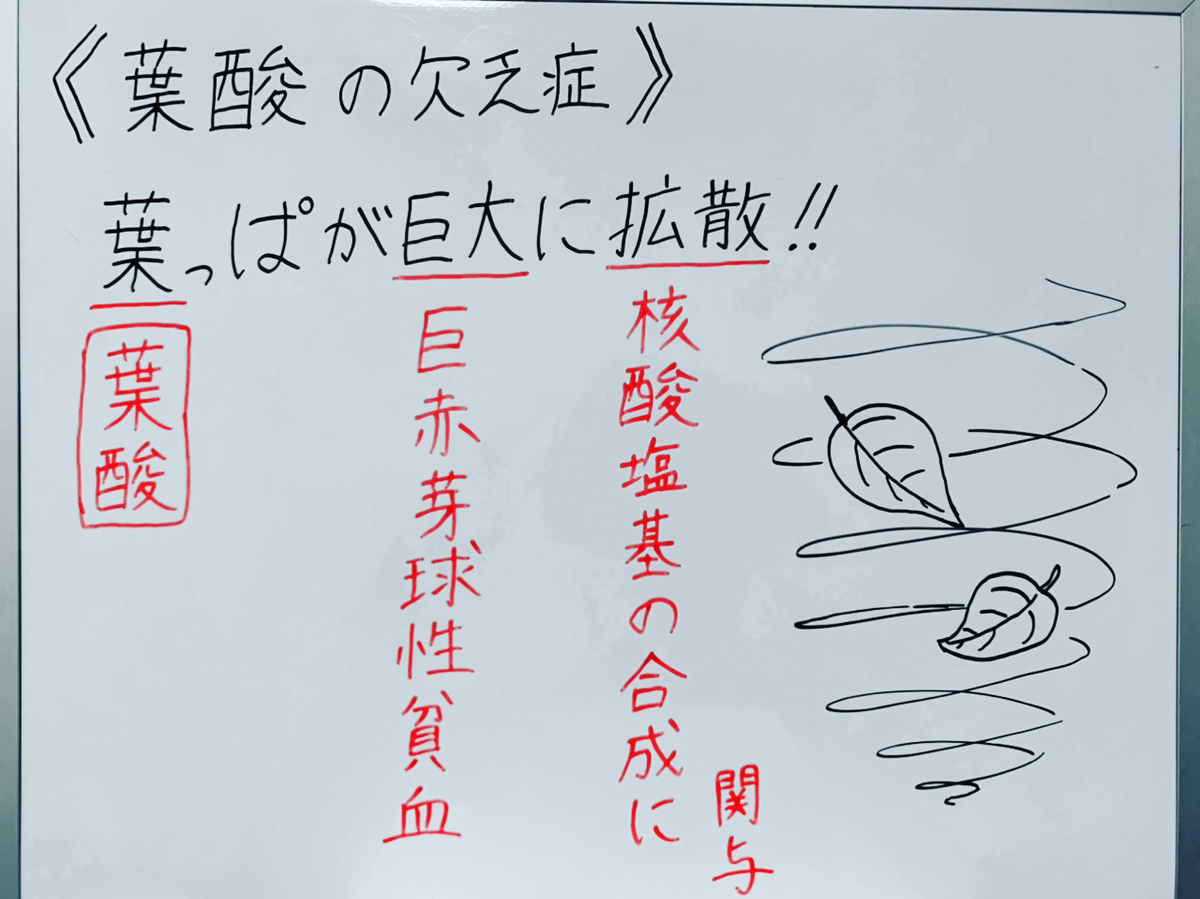 《葉酸の欠乏症》
葉っぱが巨大に拡散!!
葉酸
巨赤芽球性貧血
核酸塩基の合成に
関与